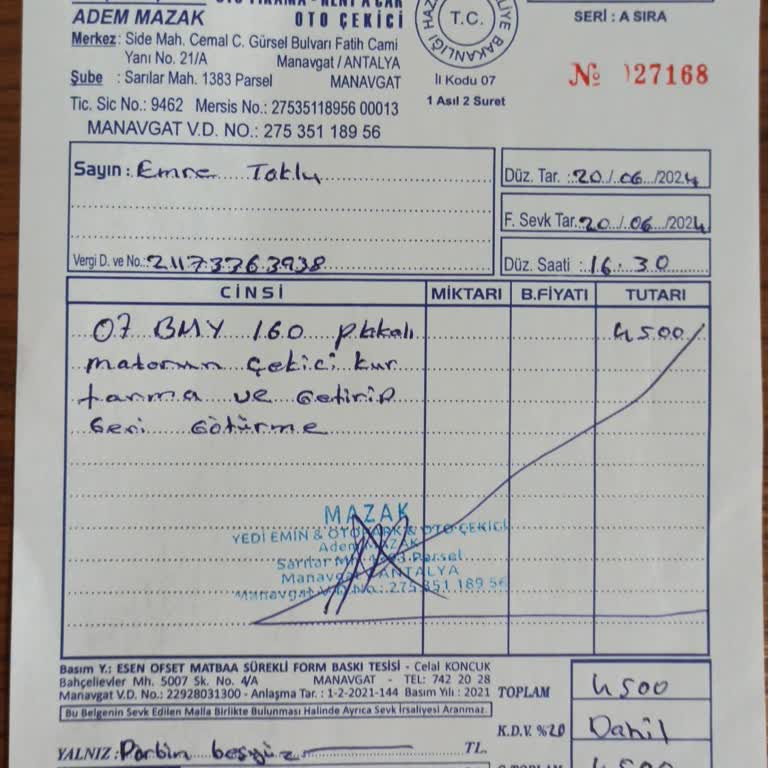 OTO YIKAMA - RENT A CAR
ADEM MAZAK OTO ÇEKİCİ
Merkez: Side Mah. Cemal C. Gürsel Bulvarı Fatih Cami
Yanı No. 21/A Manavgat / ANTALYA
Şube : Sarılar Mah. 1383 Parsel MANAVGAT
Tic. Sic No.: 9462 Mersis No.: 27535118956 00013
MANAVGAT V.D. NO.: 275 351 189 56
T.C.
İl Kodu 07
1 Asıl 2 Suret
SERİ : A SIRA
№ 027168
Sayın : Emre Toklu
Vergi D. ve No.: 21173763938
Düz. Tar. : 20/06/2024
F. Sevk Tar. 20/06/2024
Düz. Saati : 16.30
CİNSİ MİKTARI B.FİYATI TUTARI
07 BMY 160 plkalı 4500
motorun çekici kur
tarma ve Getirip
Geri Götürme
MAZAK
YEDİ EMİN & OTOPARK & OTO ÇEKİCİ
Adem MAZAK
Sarılar Mh. 1383 Parsel
Manavgat / ANTALYA
Manavgat V.D. No.: 275 351 189 56
Basım Y.: ESEN OFSET MATBAA SÜREKLİ FORM BASKI TESİSİ - Celal KONCUK
Bahçelievler Mh. 5007 Sk. No. 4/A MANAVGAT - TEL: 742 20 28
Manavgat V.D. No.: 22928031300 - Anlaşma Tar. : 1-2-2021-144 Basım Yılı : 2021
Bu Belgenin Sevk Edilen Malla Birlikte Bulunması Halinde Ayrıca Sevk İrsaliyesi Aranmaz.
TOPLAM 4500
K.D.V. %20 Dahil
YALNIZ : Dörtbin beşyüz TL.
4500